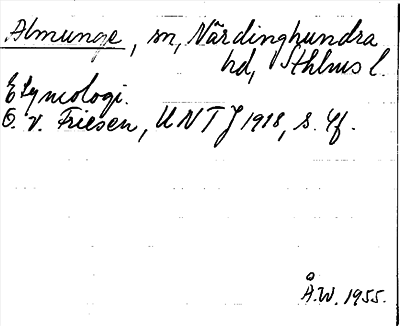 Almunge, sn, Närdinghundra
hd, Sthlms l.
Etymologi.
O. v. Friesen, UNT J 1918, s. 4f.
Å.W. 1955.